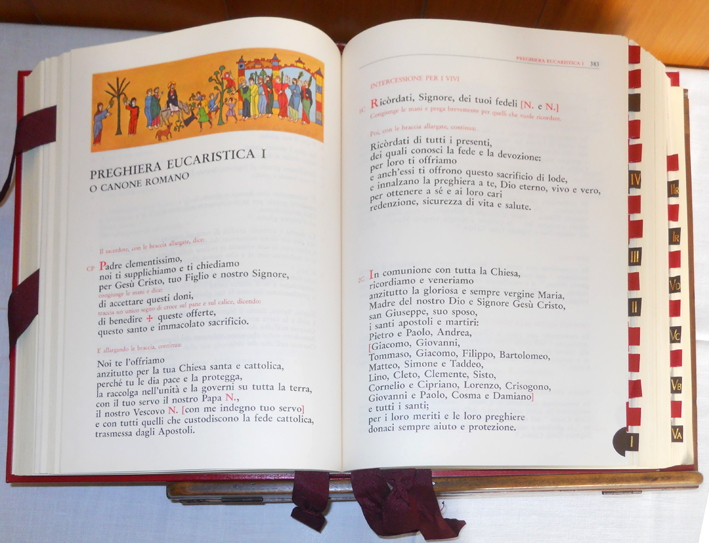 PREGHIERA EUCARISTICA I
O CANONE ROMANO
Il sacerdote, con le braccia allargate, dice:
CP Padre clementissimo,
noi ti supplichiamo e ti chiediamo
per Gesù Cristo, tuo Figlio e nostro Signore,
congiunge le mani e dice:
di accettare questi doni,
traccia un unico segno di croce sul pane e sul calice, dicendo:
di benedire ✠ queste offerte,
questo santo e immacolato sacrificio.
E allargando le braccia, continua:
Noi te l'offriamo
anzitutto per la tua Chiesa santa e cattolica,
perché tu le dia pace e la protegga,
la raccolga nell'unità e la governi su tutta la terra,
con il tuo servo il nostro Papa N.,
il nostro Vescovo N. [con me indegno tuo servo]
e con tutti quelli che custodiscono la fede cattolica,
trasmessa dagli Apostoli.
PREGHIERA EUCARISTICA I 383
INTERCESSIONE PER I VIVI
Ricòrdati, Signore, dei tuoi fedeli [N. e N.]
Congiunge le mani e prega brevemente per quelli che vuole ricordare.
Poi, con le braccia allargate, continua:
Ricòrdati di tutti i presenti,
dei quali conosci la fede e la devozione:
per loro ti offriamo
e anch'essi ti offrono questo sacrificio di lode,
e innalzano la preghiera a te, Dio eterno, vivo e vero,
per ottenere a sé e ai loro cari
redenzione, sicurezza di vita e salute.
In comunione con tutta la Chiesa,
ricordiamo e veneriamo
anzitutto la gloriosa e sempre vergine Maria,
Madre del nostro Dio e Signore Gesù Cristo,
san Giuseppe, suo sposo,
i santi apostoli e martiri:
Pietro e Paolo, Andrea,
[Giacomo, Giovanni,
Tommaso, Giacomo, Filippo, Bartolomeo,
Matteo, Simone e Taddeo,
Lino, Cleto, Clemente, Sisto,
Cornelio e Cipriano, Lorenzo, Crisogono,
Giovanni e Paolo, Cosma e Damiano]
e tutti i santi;
per i loro meriti e le loro preghiere
donaci sempre aiuto e protezione.
IV
III
II
I
VD
VC
VB
VA